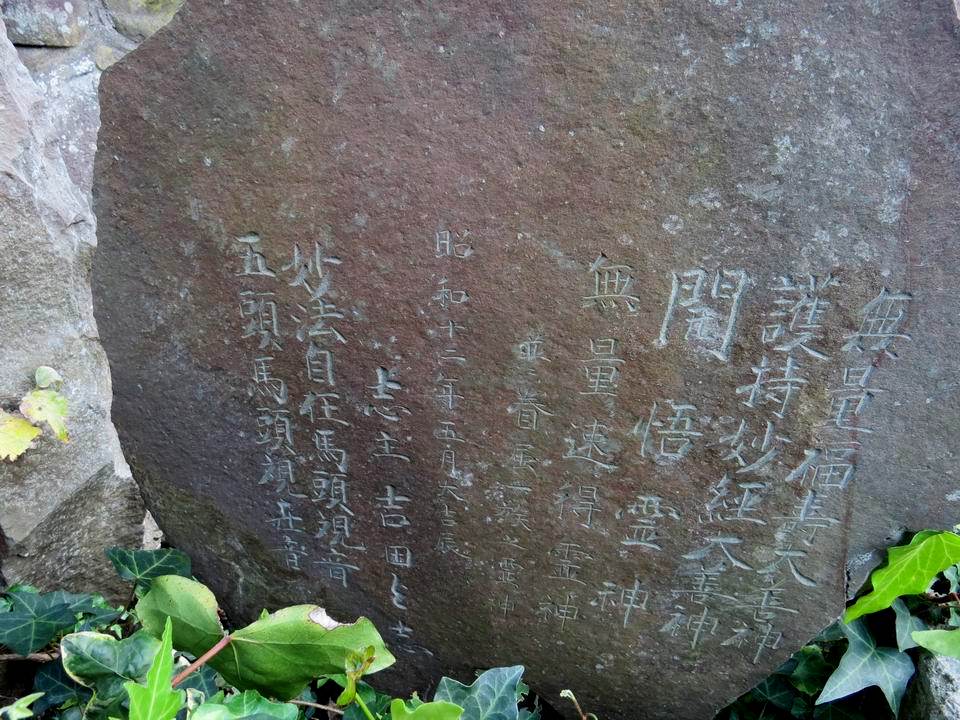 無量福寿大善神
護持妙経大善神
闇悟霊神
無量速得霊神
並眷属一族之霊神
昭和十二年五月大吉辰
志主吉田と
妙法自在馬頭観音
五頭馬頭観世音